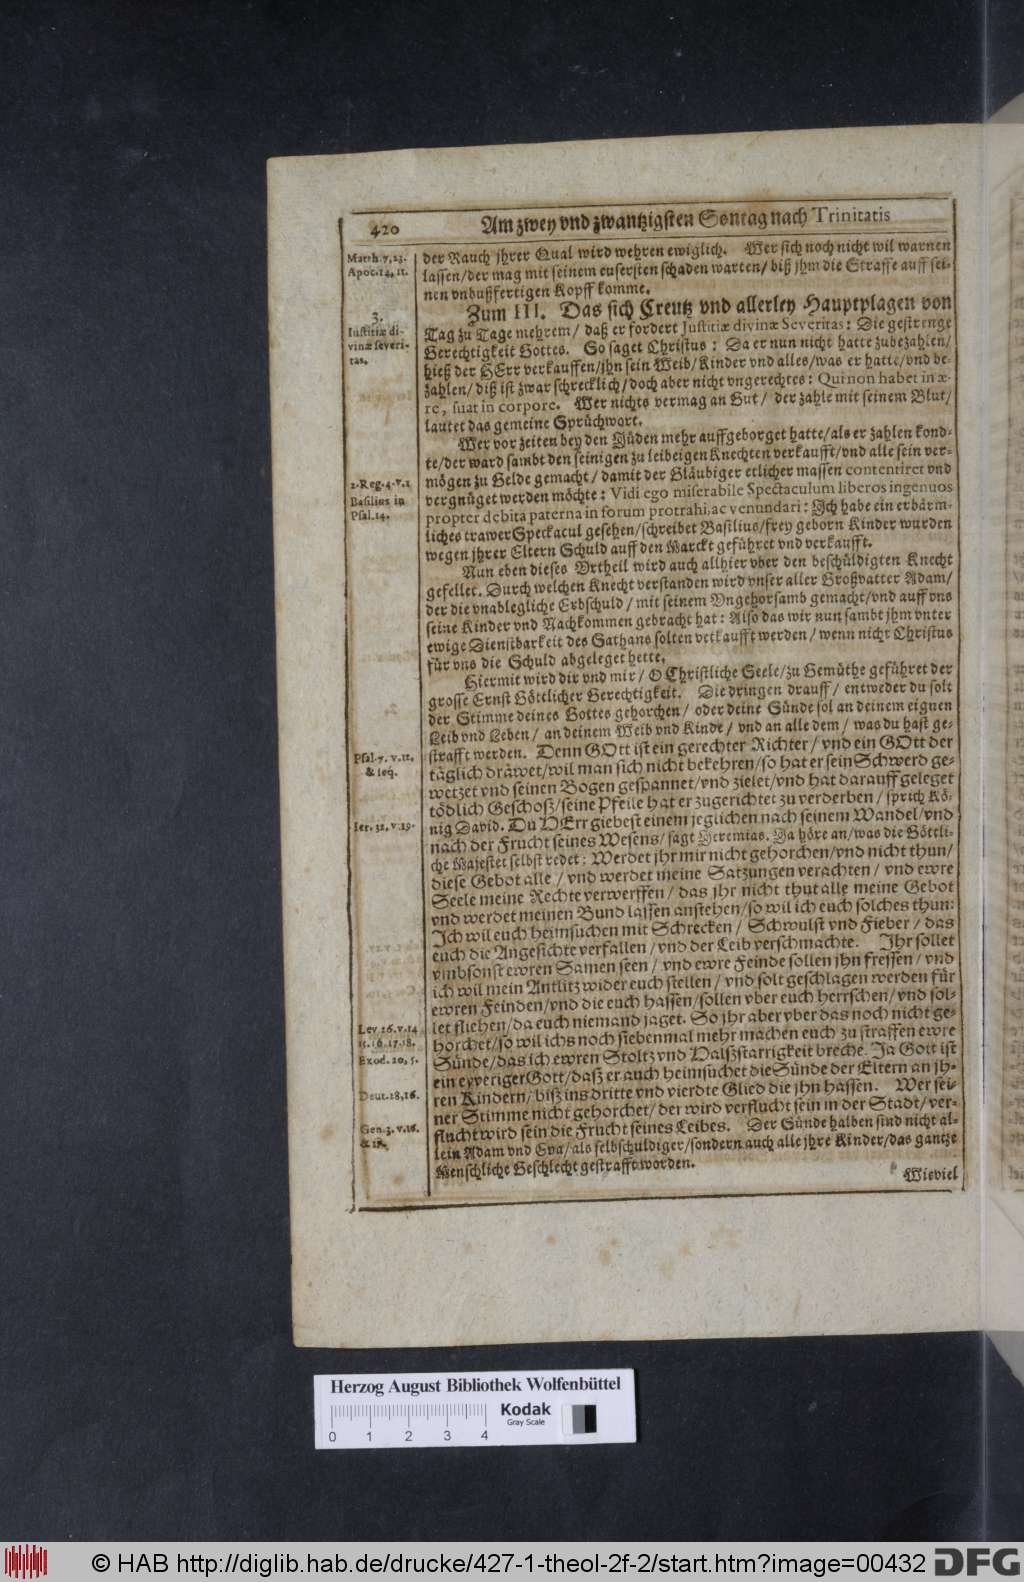 420
Am zwey vnd zwantzigsten Sontag nach Trinitatis
Matth. 7, 23.
Apoc. 14, 11.
der Rauch jhrer Qual wird wehren ewiglich. Wer sich noch nicht wil warnen
lassen/der mag mit seinem eusersten schaden warten/ biß jhm die Straffe auff sei-
nen vnbußfertigen Kopff komme.
3.
Iustitiæ di-
vinæ severi-
tas.
Zum III. Das sich Creutz vnd allerley Hauptplagen von
Tag zu Tage mehrem/ daß er fordert Justitiæ divinæ Severitas: Die gestrenge
Gerechtigkeit Gottes. So saget Christus: Da er nun nicht hatte zubezahlen/
hieß der HErr verkauffen/jhn sein Weib/Kinder vnd alles/was er hatte/vnd be-
zahlen/ diß ist zwar schrecklich/doch aber nicht vngerechtes: Qui non habet in æ-
re, luat in corpore. Wer nichts vermag an Gut/ der zahle mit seinem Blut/
lautet das gemeine Sprüchwort.
Wer vor zeiten bey den Jüden mehr auffgeborget hatte/als er zahlen kond-
te/der ward sambt den seinigen zu leibeigen Knechten verkaufft/vnd alle sein ver-
mögen zu Gelde gemacht/ damit der Gläubiger etlicher massen contentiret vnd
2. Reg. 4. v. 1
Basilius in
Psal. 14.
vergnüget werden möchte: Vidi ego miserabile Spectaculum liberos ingenuos
propter debita paterna in forum protrahi, ac venundari: Ich habe ein erbärm-
liches trawer Speckacul gesehen/schreibet Basilius/frey geborn Kinder wurden
wegen jhrer Eltern Schuld auff den Marckt geführet vnd verkaufft.
Nun eben dieses Vrtheil wird auch allhier vber den beschüldigten Knecht
gefellet. Durch welchen Knecht verstanden wird vnser aller Großvatter Adam/
der die vnablegliche Erbschuld/ mit seinem Vngehorsamb gemacht/vnd auff vns
seine Kinder vnd Nachkommen gebracht hat: Also das wir nun sambt jhm vnter
ewige Dienstbarkeit des Sathans solten verkaufft werden/ wenn nicht Christus
für vns die Schuld abgeleget hette.
Hiermit wird dir vnd mir/ O Christliche Seele/zu Gemüthe geführet der
grosse Ernst Göttlicher Gerechtigkeit. Die dringen drauff/ entweder du solt
der Stimme deines Gottes gehorchen/ oder deine Sünde sol an deinem eignen
Leib vnd Leben/ an deinem Weib vnd Kinde/ vnd an alle dem/ was du hast ge-
strafft werden. Denn GOtt ist ein gerechter Richter/ vnd ein GOtt der
Psal. 7. v. 12.
& seq.
täglich dräwet/wil man sich nicht bekehren/so hat er sein Schwerd ge-
wetzet vnd seinen Bogen gespannet/vnd zielet/vnd hat darauff geleget
tödlich Geschoß/seine Pfeile hat er zugerichtet zu verderben/ sprich Kö-
Ier. 32. v. 19.
nig David. Du HErr giebest einem jeglichen nach seinem Wandel/vnd
nach der Frucht seines Wesens/ sagt Jeremias. Ja höre an/was die Göttli-
che Majestet selbst redet: Werdet jhr mir nicht gehorchen/vnd nicht thun/
diese Gebot alle/ vnd werdet meine Satzungen verachten/ vnd ewre
Seele meine Rechte verwerffen/ das jhr nicht thut alle meine Gebot
vnd werdet meinen Bund lassen anstehen/so wil ich euch solches thun:
Ich wil euch heimsuchen mit Schrecken/ Schwulst vnd Fieber/ das
euch die Angesichte verfallen/vnd der Leib verschmachte. Ihr sollet
vmbsonst ewren Samen seen/ vnd ewre Feinde sollen jhn fressen/ vnd
ich wil mein Antlitz wider euch stellen/ vnd solt geschlagen werden für
ewren Feinden/vnd die euch hassen/sollen vber euch herrschen/vnd sol-
Lev. 26. v. 14
15. 16. 17. 18.
Exod. 20, 5.
let fliehen/da euch niemand jaget. So jhr aber vber das noch nicht ge-
horchet/so wil ichs noch siebenmal mehr machen euch zu straffen ewre
Sünde/das ich ewren Stoltz vnd Halßstarrigkeit breche. Ja Gott ist
ein eyveriger Gott/daß er auch heimsuchet die Sünde der Eltern an jh-
Deut. 28, 16.
ren Kindern/ biß ins dritte vnd vierdte Glied die jhn hassen. Wer sei-
ner Stimme nicht gehorchet/ der wird verflucht sein in der Stadt/ ver-
Gen. 3. v. 16.
& 17.
flucht wird sein die Frucht seines Leibes. Der Sünde halben sind nicht al-
lein Adam vnd Eva/als selbschuldiger/sondern auch alle jhre Kinder/das gantze
Menschliche Geschlecht gestrafft worden.
Wieviel
Herzog August Bibliothek Wolfenbüttel
Kodak
Gray Scale
0 1 2 3 4
© HAB http://diglib.hab.de/drucke/427-1-theol-2f-2/start.htm?image=00432
DFG